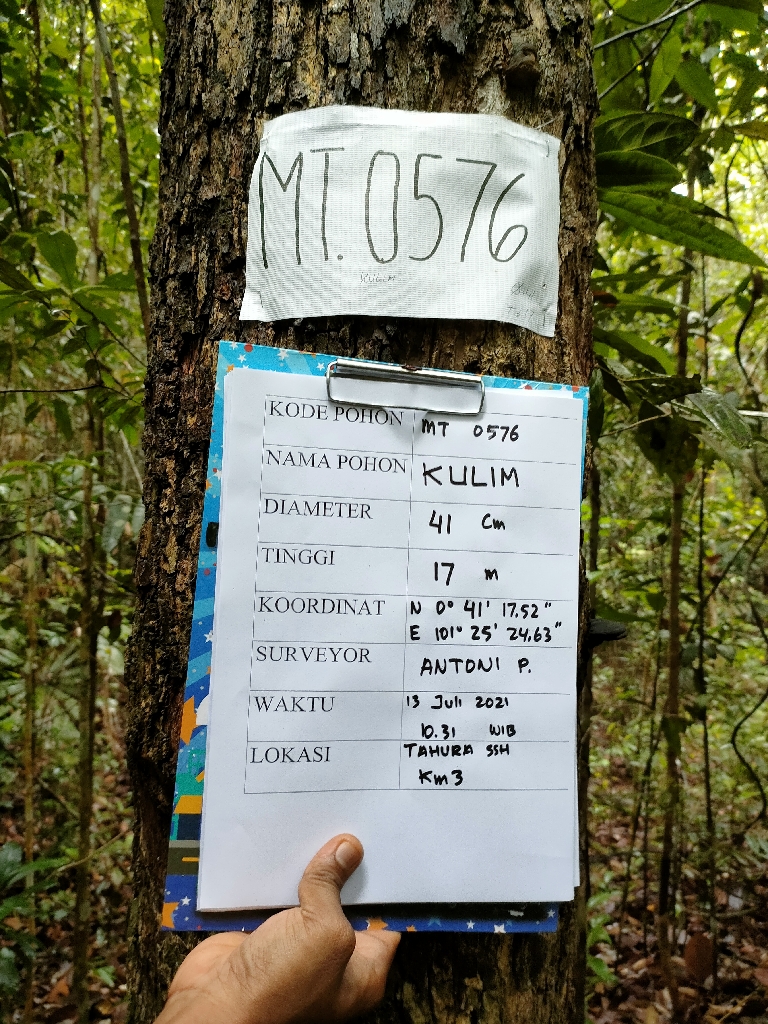 MT. 0576
KULIM
KODE POHON MT 0576
NAMA POHON KULIM
DIAMETER 41 Cm
TINGGI 17 m
KOORDINAT N 0° 41' 17.52"
E 101° 25' 24.63"
SURVEYOR ANTONI P.
WAKTU 13 Juli 2021
10.31 WIB
LOKASI TAHURA SSH
Km3